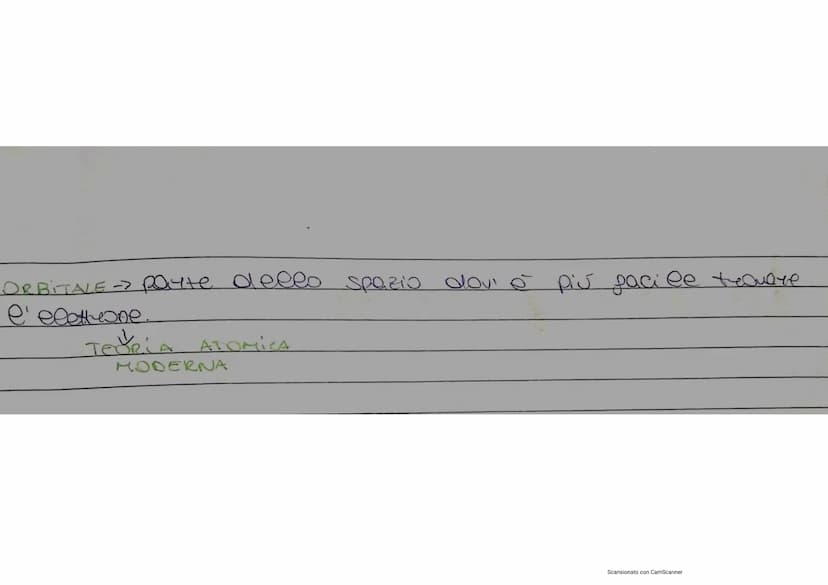 ORBITALE -> parte dello spazio dov'è più facile trovare
l'elettrone.
TEORIA ATOMICA
MODERNA
Scansionato con CamScanner